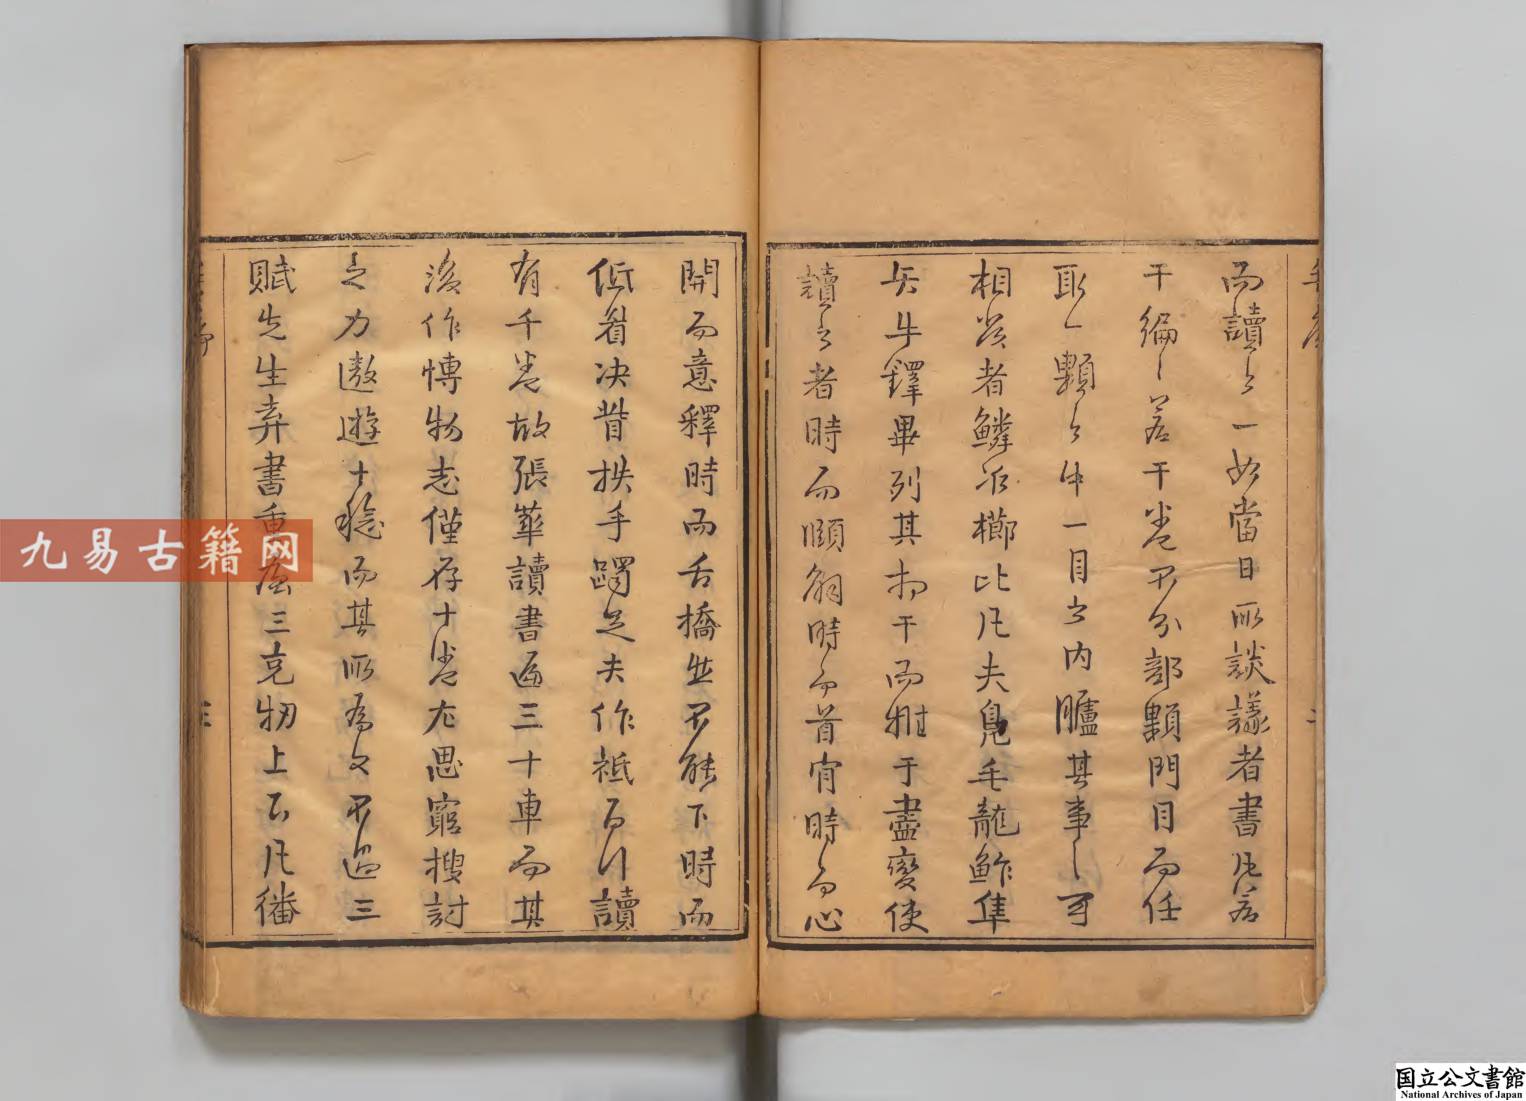 而讀之一如當日所談議者書凡若
干編編若干卷卷不分部顆門目而任
取一顆之中一目之内臚其事事可
相發者鱗次櫛比凡夫鳧毛龍鮓隼
矢牛鐸畢列其
讀之者時而頤解時而首肯時而心
開而意釋時而舌撟些不能下時而
低眉決眥扶手躅足夫作祗
有千卷故張華讀書遍三十車而其
後作博物志僅存十卷左思窮搜討
之力遨遊十稔而其所為文不過三
賦先生弃書
九易古籍网
国立公文書館
National Archives of Japan